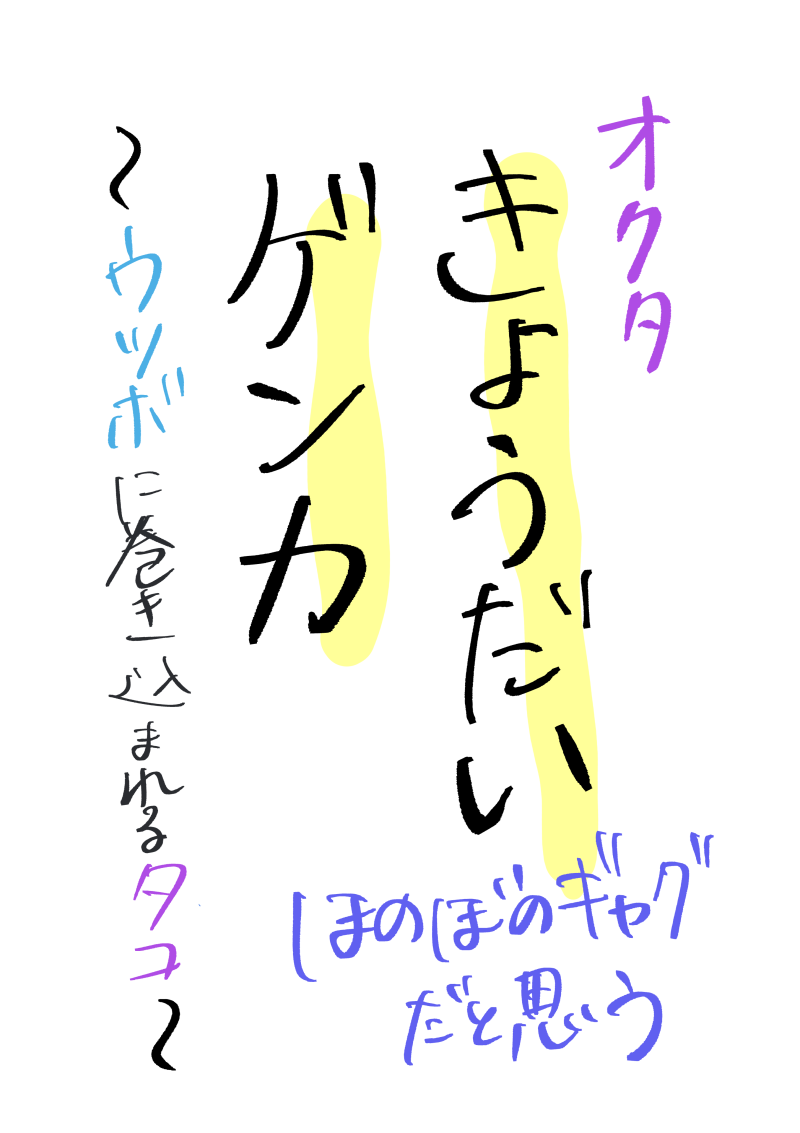 オクタ
きょうだい
ゲンカ
〜ウツボに巻き込まれるタコ〜
ほのぼのギャグ
だと思う